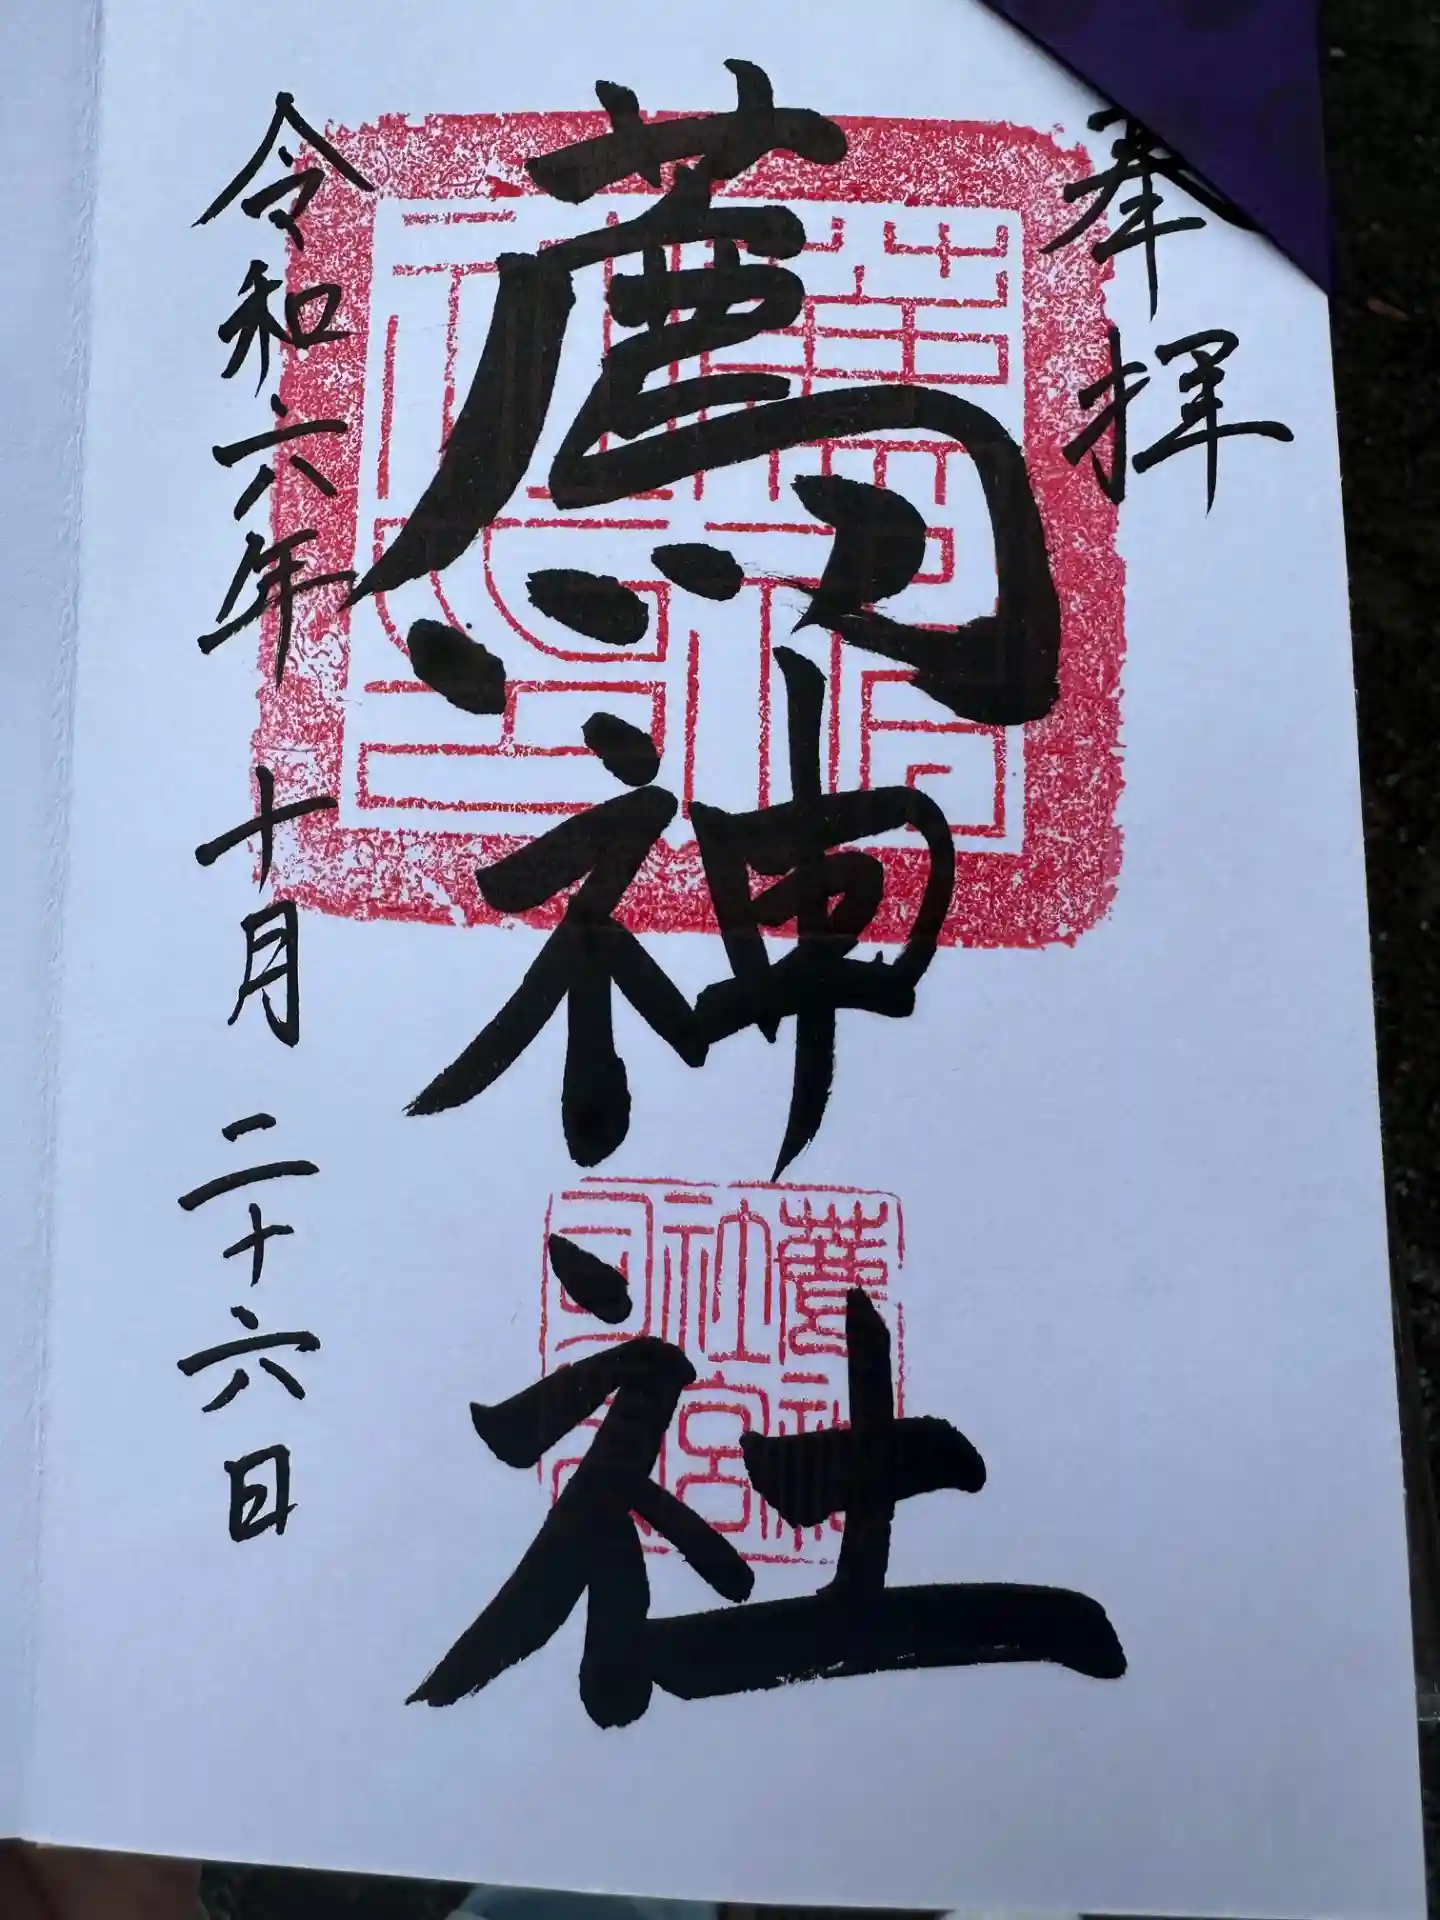 奉拝
薦神社
令和六年 十月 二十六日